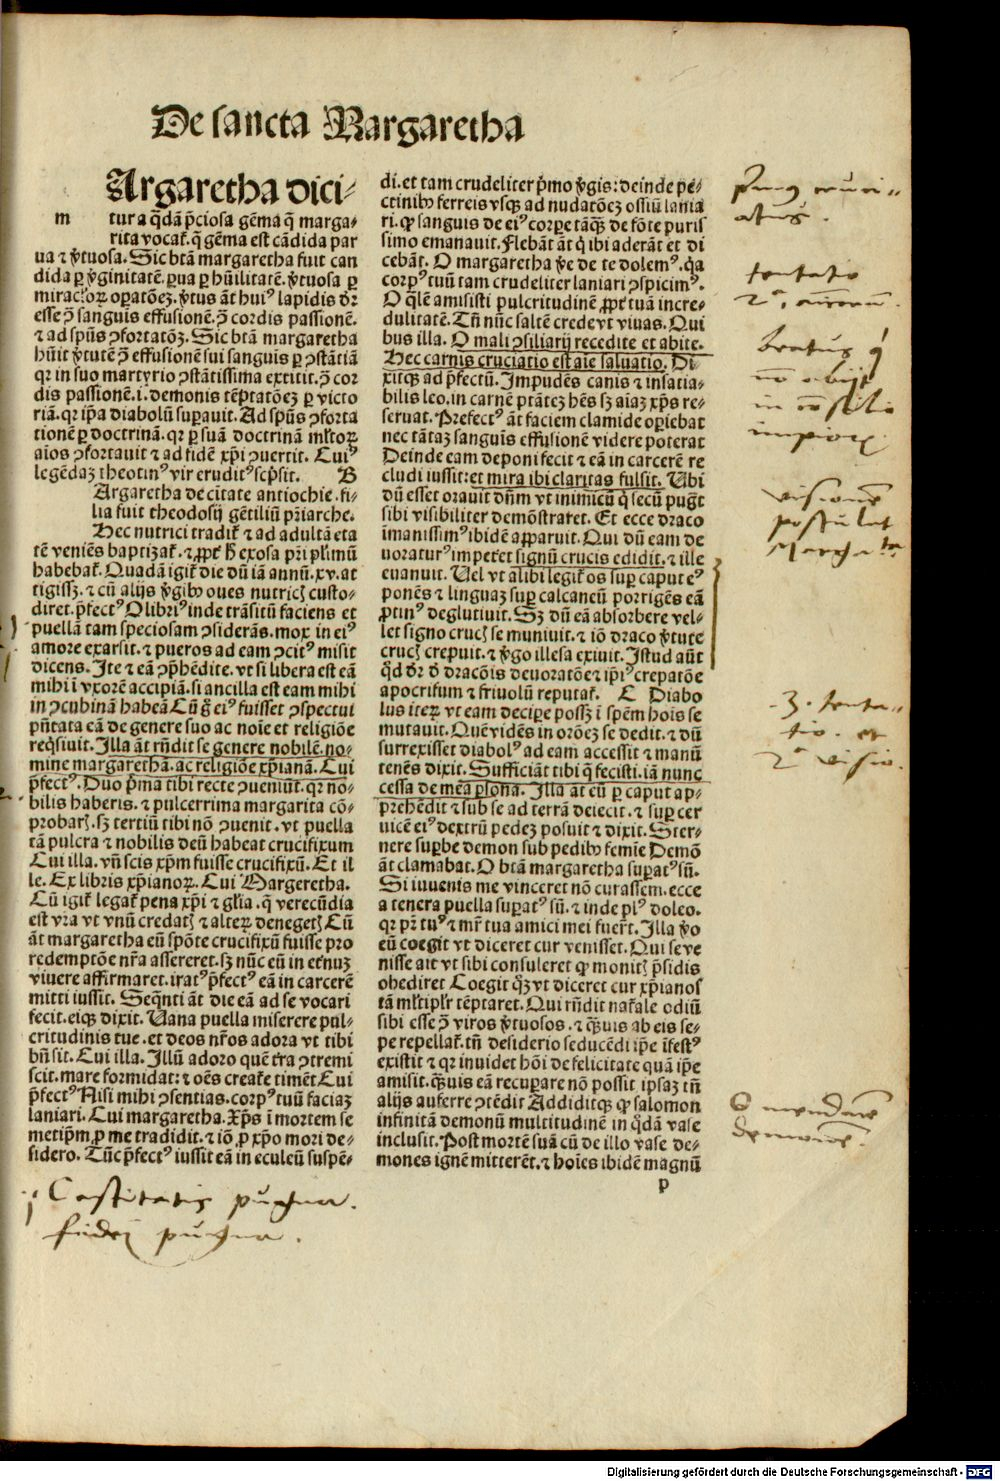 De sancta Margaretha
Argaretha dici⸗
m
tur a q̄dā p̄ciosa gēma q̄ marga⸗
rita vocat᷑. q̄ gēma est cādida par
ua ⁊ v̓tuosa. Sic btā margaretha fuit can
dida ꝑ v̓ginitatē. ꝑua ꝑ hūilitatē. v̓tuosa ꝑ
miraclo᷑ꝝ oꝑatōeꝫ. v̓tus āt huiꝰ lapidis dr̄
esse ꝯ̄ sanguis effusionē. ꝯ̄ cordis passionē.
⁊ ad spūs ꝯfortatōꝫ. Sic btā margaretha
hūit v̓tutē ꝯ̄ effusionē sui sanguis ꝑ ꝯstātiā
qꝛ in suo martyrio ꝯstātissima extitit. ꝯ̄ cor
dis passionē .i. demonis tēptatōeꝫ ꝑ victo
riā. qꝛ ip̄a diabolū suꝑauit. Ad spūs ꝯforta
tionē ꝑ doctrinā. qꝛ ꝑ suā doctrinā ml̓toꝝ
aīos ꝯfortauit ⁊ ad fidē xp̄i ꝯuertit. Cuiꝰ
legēdaꝫ theotinꝰ vir eruditꝰ scp̄sit. B
Argaretha de ciitate antiochie. fi⸗
lia fuit theodosij gētiliū pr̄iarche.
Hec nutrici tradit᷑ ⁊ ad adultā eta
tē veniēs baptizat᷑. ⁊ ꝓpt̓ h̄ exosa pr̄i pl̓imū
habebat᷑. Quadā igit᷑ die dū iā annū .xv. at
tigissꝫ. ⁊ cū alijs v̓gibꝰ oues nutricꝭ custo⸗
diret. p̄fectꝰ Olibriꝰ inde trāsitū faciens et
puellā tam speciosam ꝯsiderās. mox in eiꝰ
amore exarsit. ⁊ pueros ad eam ꝯcitꝰ misit
dicens. Ite ⁊ eā ꝯp̄hēdite. vt si libera est eā
mihi ī vxorē accipiā. si ancilla est eam mihi
in ꝯcubinā habeā Cū g̊ eiꝰ fuisset ꝯspectui
pn̄tata eā de genere suo ac noīe et religiōe
reqͥsiuit. Illa āt rn̄dit se genere nobilē. no⸗
mine margarethā. ac religiōe xp̄ianā. Cui
p̄fectꝰ. Duo p̄ma tibi recte ꝯueniūt. qꝛ no⸗
bilis haberis. ⁊ pulcerrima margarita cō⸗
probarꝭ. sꝫ tertiū tibi nō ꝯuenit. vt puella
tā pulcra ⁊ nobilis deū habeat crucifixum
Cui illa. vn̄ scis xp̄m fuisse crucifixū. Et il
le. Ex libris xp̄ianoꝝ. Cui Margeretha.
Cū igit᷑ legat᷑ pena xp̄i ⁊ gl̓ia. q̄ verecūdia
est vr̄a vt vnū credatꝭ ⁊ alteꝝ denegetꝭ Cū
āt margaretha eū spōte crucifixū fuisse pro
redemptōe nr̄a assereret. sꝫ nūc eū in et̓nuꝫ
viuere affirmaret. iratꝰ p̄fectꝰ eā in carcerē
mitti iussit. Seqn̄ti āt die eā ad se vocari
fecit. eiqꝫ dixit. Uana puella miserere pul⸗
critudinis tue. et deos nr̄os adora vt tibi
bn̄ sit. Cui illa. Illū adoro quē tr̄a ꝯtremi
scit. mare formidat: ⁊ oēs creat᷑e timēt Cui
p̄fectꝰ Nisi mihi ꝯsentias. corpꝰ tuū faciaꝫ
laniari. Cui margaretha. Xp̄s ī mortem se
metip̄m ꝓ me tradidit. ⁊ iō ꝓ xp̄o mori de⸗
sidero. Tūc p̄fectꝰ iussit eā in eculeū suspē⸗
di. et tam crudeliter p̓mo v̓gis: deinde pe⸗
ctinibꝰ ferreis vsqꝫ ad nudatōeꝫ ossiū lania
ri. ꝙ sanguis de eiꝰ corꝑe tāqꝫ̄ de fōte puris
simo emanauit. Flebāt āt qͥ ibi aderāt et di
cebāt. O margaretha v̓e de te dolemꝰ. qꝛa
corpꝰ tuū tam crudeliter laniari ꝯspicimꝰ.
O qͣlē amisisti pulcritudinē ꝓpt̓ tuā incre⸗
dulitatē. Tn̄ nūc saltē crede vt viuas. Qui
bus illa. O mali ꝯsiliarij recedite et abite.
Hec carnis cruciatio est aīe saluatio. Di⸗
xitqꝫ ad p̄fectū. Impudēs canis ⁊ insatia⸗
bilis leo. in carnē ptāteꝫ hēs sꝫ aīaꝫ xp̄s re⸗
seruat. Prefectꝰ āt faciem clamide oꝑiebat
nec tātaꝫ sanguis effusionē videre poterat
Deinde eam deponi fecit ⁊ eā in carcerē re
cludi iussit: et mira ibi claritas fulsit. Ubi
dū esset orauit dn̄m vt inimicū qͥ secū pugͣt
sibi visibiliter demōstraret. Et ecce draco
imanissimꝰ ibidē apparuit. Qui dū eam de
uoraturꝰ impet̓et signū crucis edidit. ⁊ ille
euanuit. Uel vt alibi legit᷑ os suꝑ caput eꝰ
ponēs ⁊ linguaꝫ suꝑ calcaneū portigēs eā
ꝓtinꝰ deglutiuit. Sꝫ dū eā absorbere vel⸗
let signo crucꝭ se muniuit. ⁊ iō draco v̓tute
crucꝭ crepuit. ⁊ v̓go illesa exiuit. Istud aūt
qd̓ dr̄ d̓ dracōis deuoratōe ⁊ ip̄iꝰ crepatōe
apocrifum ⁊ friuolū reputat᷑. C Diabo
lus iteꝝ vt eam deciꝑe possꝫ ī spēm hoīs se
mutauit. Quē vidēs in orōeꝫ se dedit. ⁊ dū
surrexisset diabolꝰ ad eam accessit ⁊ manū
tenēs dixit. Sufficiāt tibi q̄ fecisti. iā nunc
cessa de mea ꝑsona. Illa āt eū ꝑ caput ap⸗
prehēdit ⁊ sub se ad terrā deiecit. ⁊ suꝑ cer
uicē eiꝰ dextrū pedeꝫ posuit ⁊ dixit. Ster⸗
nere suꝑbe demon sub pedibꝰ femie Demō
āt clamabat. O btā margaretha suꝑatꝰ sū.
Si iuuenis me vinceret nō curassem. ecce
a tenera puella suꝑatꝰ sū. ⁊ inde plꝰ doleo.
qꝛ pr̄ tuꝰ ⁊ mr̄ tua amici mei fuer̄t. Illa v̓o
eū coegit vt diceret cur venisset. Qui se ve
nisse ait vt sibi consuleret ꝙ monitꝭ p̄sidis
obediret Coegit qͦꝫ vt diceret cur xp̄ianos
tā ml̓tipl̓r tēptaret. Qui rn̄dit nat᷑ale odiū
sibi esse ꝯ̄ viros v̓tuosos. ⁊ qꝫ̄uis ab eis se⸗
pe repellat᷑. tn̄ desiderio seducēdi ip̄e īfestꝰ
existit ⁊ qꝛ inuidet hōi de felicitate quā ip̄e
amisit. qꝫ̄uis eā recuꝑare nō possit ipsaꝫ tn̄
alijs auferre ꝯtēdit Addiditqꝫ ꝙ salomon
infinitā demonū multitudinē in qͦdā vase
inclusit. Post mortē suā cū de illo vase de⸗
mones ignē mitterēt. ⁊ hoīes ibidē magnū
p
cruci⸗
atus.
tentatio
beatus
impioꝝ.
visionē
postulat
Margha^ta
.3. tenta⸗
tio. et
2ᵃ visio.
Castitatis pugna.
fidei pugna.
Digitalisierung gefördert durch die Deutsche Forschungsgemeinschaft - DFG